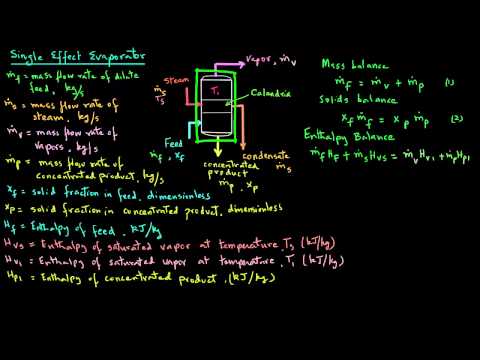 Single Effect Evaporator
ṁf = mass flow rate of dilute
feed, kg/s
ṁs = mass flow rate of
steam, kg/s
ṁv = mass flow rate of
vapors, kg/s
ṁp = mass flow rate of
concentrated product, kg/s
xf = solid fraction in feed, dimensionless
xp = solid fraction in concentrated product, dimensionless
Hf = Enthalpy of feed, kJ/kg
Hvs = Enthalpy of saturated vapor at temperature, Ts (kJ/kg)
Hv1 = Enthalpy of saturated vapor at temperature, T1 (kJ/kg)
Hp1 = Enthalpy of concentrated product, (kJ/kg)
Vapor, ṁv
Steam
ṁs
Ts
T1
Calandria
Feed
ṁf, xf
concentrated
product
ṁp, xp
condensate
ṁs
Mass balance
ṁf = ṁv + ṁp (1)
Solids balance
xf ṁf = xp ṁp (2)
Enthalpy Balance
ṁf Hf + ṁs Hvs = ṁv Hv1 + ṁp Hp1